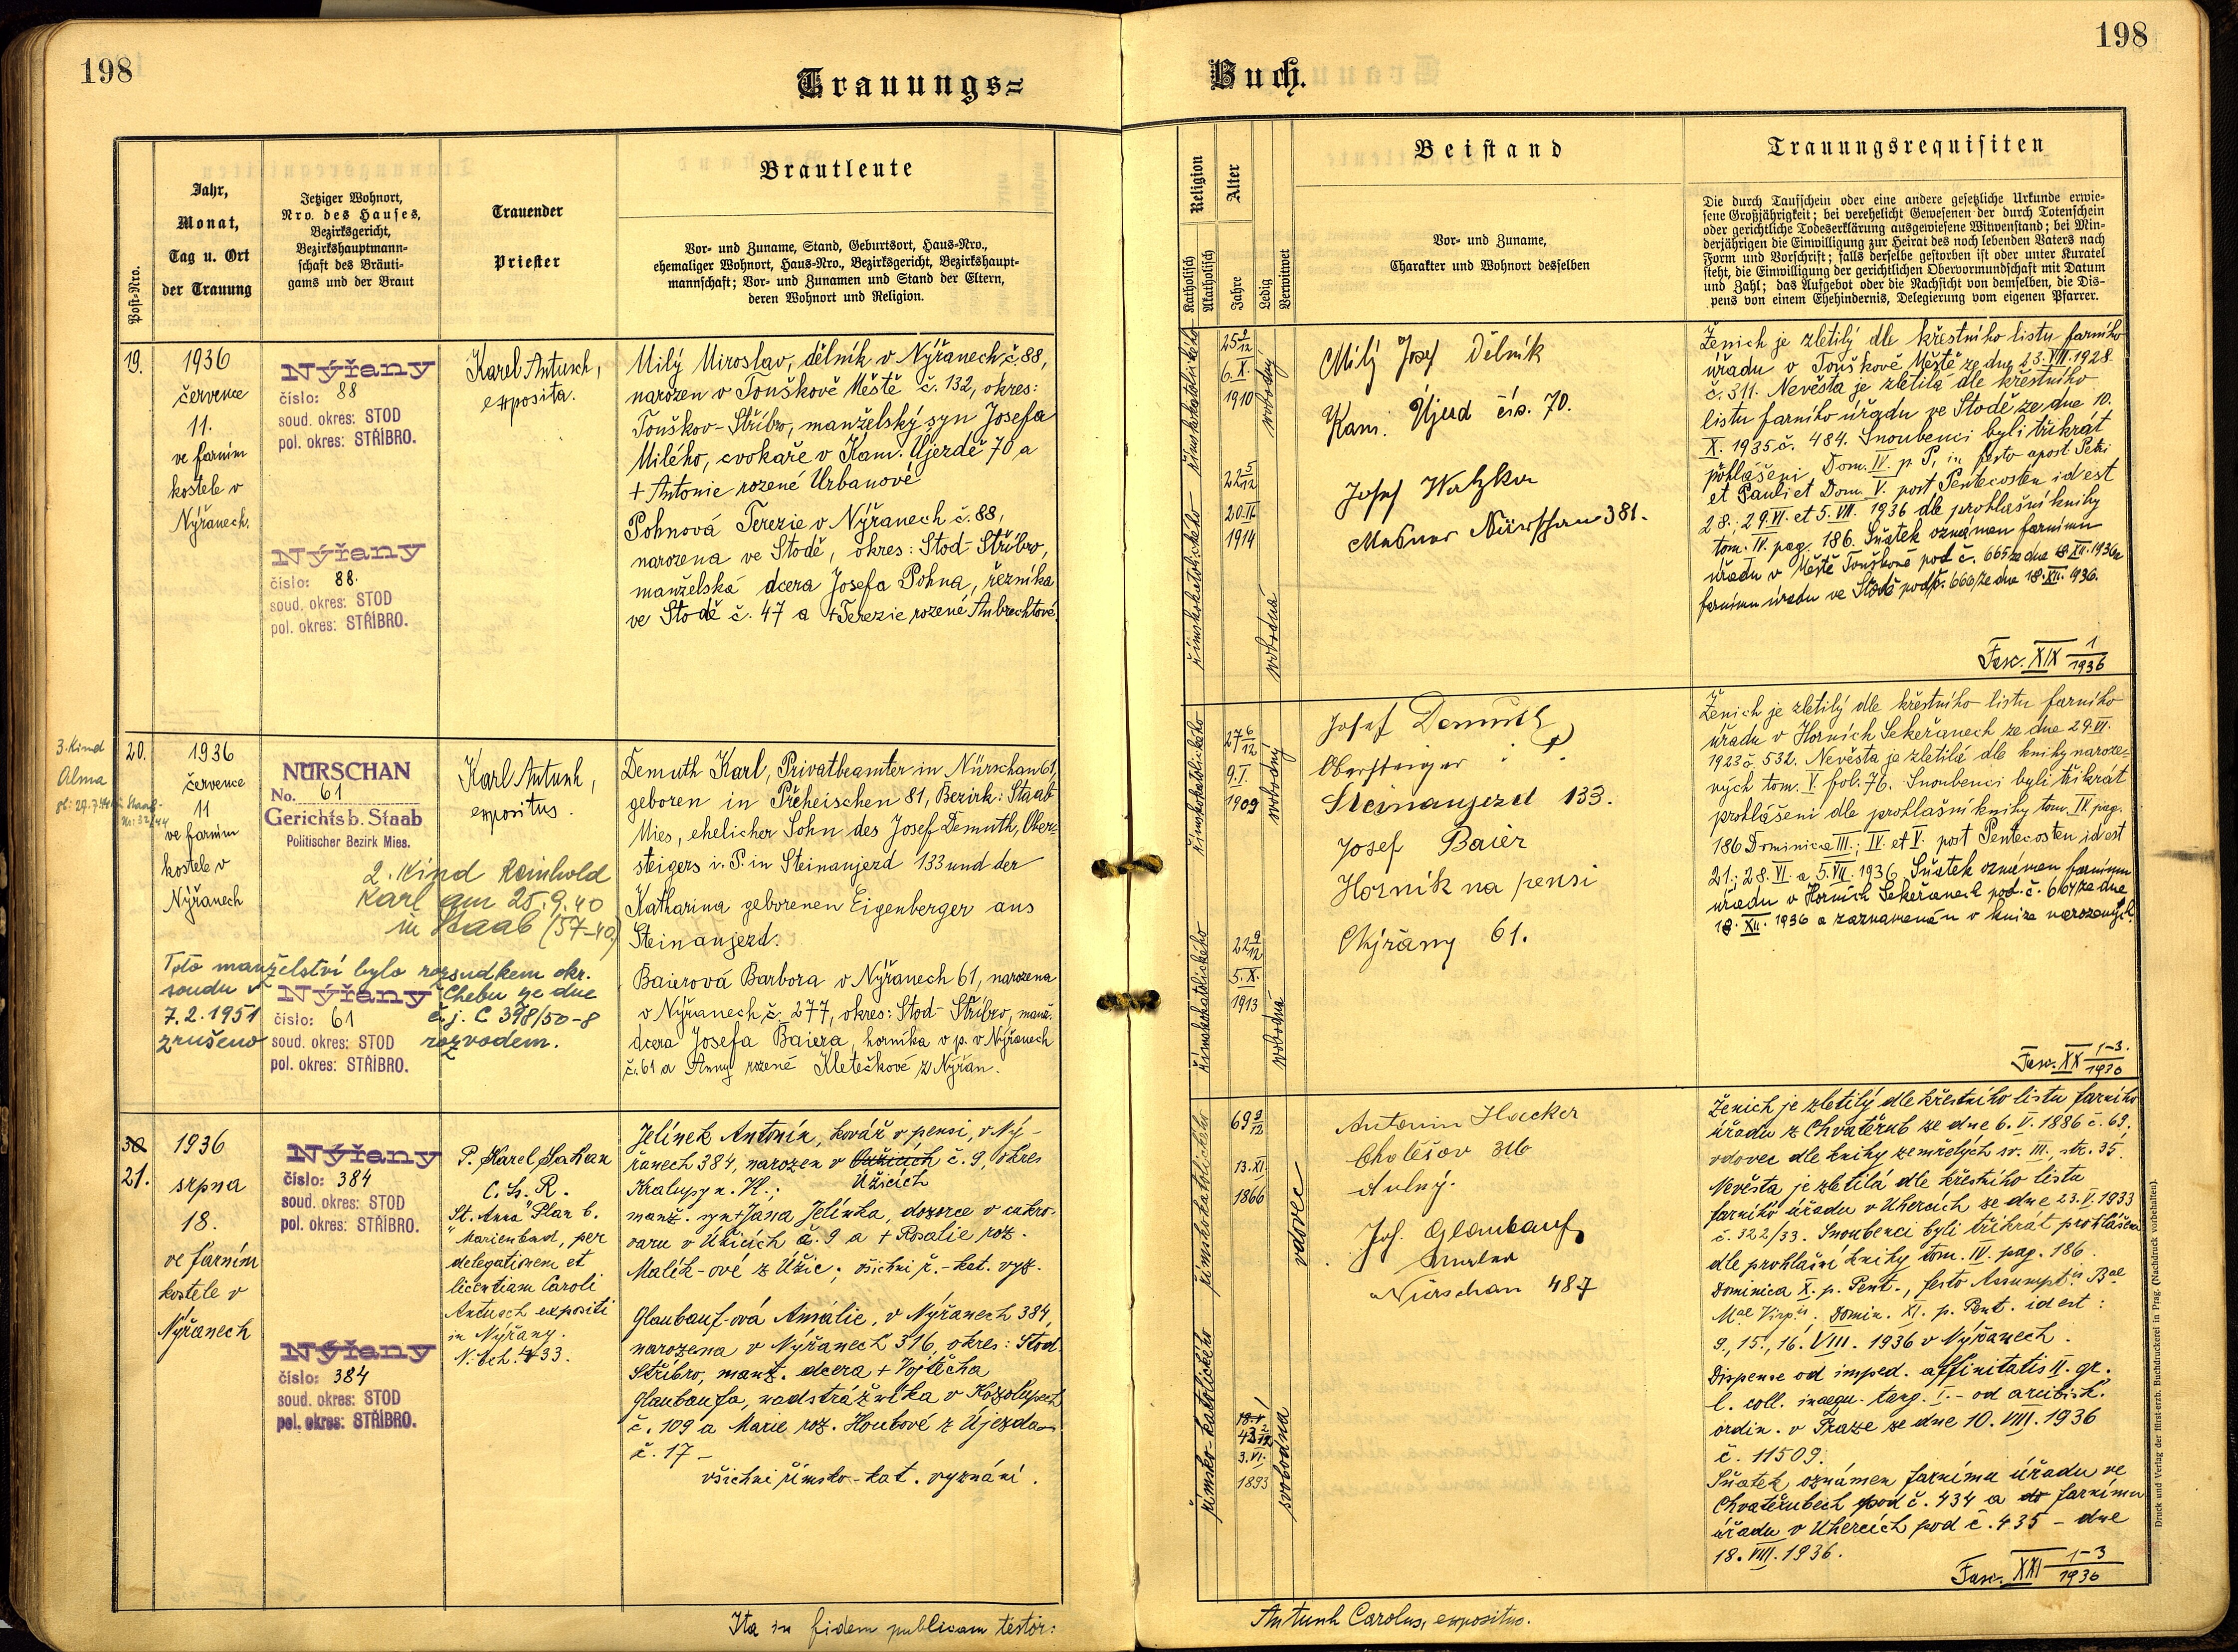 198
198
Trauungs=
Buch.
Post=Nro.
Jahr,
Monat,
Tag u. Ort
der Trauung
Jetziger Wohnort,
Nro. des Hauses,
Bezirksgericht,
Bezirkshauptmann-
schaft des Bräuti-
gams und der Braut
Trauender
Priester
Brautleute
Vor- und Zuname, Stand, Geburtsort, Haus-Nro.,
ehemaliger Wohnort, Haus-Nro., Bezirksgericht, Bezirkshaupt-
mannschaft; Vor- und Zunamen und Stand der Eltern,
deren Wohnort und Religion.
Religion
Katholisch
Akatholisch
Alter
Jahre
Ledig
Verwitwet
Beistand
Vor- und Zuname,
Charakter und Wohnort desselben
Trauungsrequisiten
Die durch Taufschein oder eine andere gesetzliche Urkunde erwie-
sene Großjährigkeit; bei verehelicht Gewesenen der durch Totenschein
oder gerichtliche Todeserklärung ausgewiesene Witwenstand; bei Min-
derjährigen die Einwilligung zur Heirat des noch lebenden Vaters nach
Form und Vorschrift; falls derselbe gestorben ist oder unter Kuratel
steht, die Einwilligung der gerichtlichen Obervormundschaft mit Datum
und Zahl; das Aufgebot oder die Nachsicht von demselben, die Dis-
pens von einem Ehehindernis, Delegierung vom eigenen Pfarrer.
19.
1936
července
11.
ve farním
kostele v
Nýřanech.
Nýřany
číslo: 88
soud. okres: STOD
pol. okres: STŘÍBRO.
Nýřany
číslo: 88.
soud. okres: STOD
pol. okres: STŘÍBRO.
Karel Antusch,
exposita.
Milý Miroslav, dělník v Nýřanech č. 88,
narozen v Touškově Městě č. 132, okres:
Touškov-Stříbro, manželský syn Josefa
Milého, cvokaře v Kam. Újezdě 70 a
+ Antonie rozené Urbanové
Pohnová Terezie v Nýřanech č. 88,
narozena ve Stodě, okres: Stod-Stříbro,
manželská dcera Josefa Pohna, řezníka
ve Stodě č. 47 a + Terezie rozené Aubrechtové.
římskokatolického
římskokatolického
25 9/12
6. X.
1910
svobodný
22 5/12
20. II.
1914
svobodná
Milý Josef Dělník
Kam. Újezd čís. 70.
Josef Watzka
Mesner Nürschan 381.
Ženich je zletilý dle křestního listu farního
úřadu v Touškově Městě ze dne 23. VII. 1928
č. 311. Nevěsta je zletilá dle křestního
listu farního úřadu ve Stodě ze dne 10.
X. 1935 č. 484. Snoubenci byli třikrát
prohlášeni Dom. IV. p. P., in festo apost. Petri
et Pauli et Dom. V. post Pentecosten id est
28.; 29. VI. et 5. VII. 1936 dle prohlašní knihy
tom. IV. pag. 186. Sňatek oznámen farnímu
úřadu v Městě Touškově pod č. 665 ze dne 18. XII. 1936 a
farnímu úřadu ve Stodě pod č. 666/ze dne 18. XII. 1936.
Fasc. XIX 1/1936
3. Kind
Alma
20.
1936
července
11
ve farním
kostele v
Nýřanech
NÜRSCHAN
No. 61
Gerichtsb. Staab
Politischer Bezirk Mies.
2. Kind Reinhold
Karl am 25.9.40
in Staab (57-40)
Toto manželství bylo rozsudkem okr.
soudu v Chebu ze dne
7.2.1951 č.j. C 398/50-8
zrušeno rozvodem.
Nýřany
číslo: 61
soud. okres: STOD
pol. okres: STŘÍBRO.
Karl Antush,
expositus.
Demuth Karl, Privatbeamter in Nürschan 61,
geboren in Přeheischen 81, Bezirk: Staab
Mies, ehelicher Sohn des Josef Demuth, Ober-
steigers i. P. in Steinaujezd 133 und der
Katharina geborenen Eigenberger aus
Steinaujezd.
Baierová Barbora v Nýřanech 61, narozena
v Nýřanech č. 277, okres: Stod-Stříbro, manž.
dcera Josefa Baiera, horníka v p. v Nýřanech
č. 61 a Anny rozené Kletečkové z Nýřan.
římskokatolického
římskokatolického
27 6/12
9. I.
1909
svobodný
22 9/12
5. X.
1913
svobodná
Josef Demuth
Obersteiger i. P.
Steinaujezd 133.
Josef Baier
Horník na pensi
Nýřany 61.
Ženich je zletilý dle křestního listu farního
úřadu v Horních Sekeřanech ze dne 29. VI.
1923 č. 532. Nevěsta je zletilá dle knihy naroze-
ných tom. V. fol. 76. Snoubenci byli třikrát
prohlášeni dle prohlašní knihy tom. IV pag.
186 Dominica III.; IV. et V. post Pentecosten id est
21.; 28. VI. a 5. VII. 1936. Sňatek oznámen farnímu
úřadu v Horních Sekeřanech pod č. 667/ze dne
18. XII. 1936 a zaznamenán v knize narozených.
Fasc. XX 1-3./1936
30
21.
1936
srpna
18.
ve farním
kostele v
Nýřanech
Nýřany
číslo: 384
soud. okres: STOD
pol. okres: STŘÍBRO.
Nýřany
číslo: 384
soud. okres: STOD
pol. okres: STŘÍBRO.
P. Karel
C. Ss. R.
"St. Anna" Plan b.
Marienbad, per
delegationem et
licentiam Caroli
Antusch expositi
in Nýřany.
Jelínek Antonín, kovář v pensi, v Ný-
řanech 384, narozen v Úžicích č. 9, okres
Kralupy n. Vl.;
manž. syn + Jana Jelínka, dozorce v cukro-
varu v Úžicích č. 9 a + Rosalie roz.
Malík-ové z Úžic; všichni ř.-kat. vyz.
Glaubauf-ová Amálie, v Nýřanech 384,
narozena v Nýřanech 316, okres: Stod-
Stříbro, manž. dcera + Vojtěcha
Glaubaufa, nadstrážníka v Kozolupech
č. 109 a Marie roz. Houbové z Újezda
č. 17 -
všichni římsko-kat. vyznání.
římskokatolického
římsko-katolického
69 9/12
13. XI.
1866
vdovec
43 2/12
3. VI.
1893
svobodna
Antonín Hacker
Chotěšov 316
Joh. Glaubauf
Nürschan 487
Ženich je zletilý dle křestního listu farního
úřadu z Chvatěrub ze dne 6. V. 1886 č. 69,
vdovec dle knihy zemřelých sv. III., str. 35.
Nevěsta je zletilá dle křestního listu
farního úřadu v Uhercích ze dne 23. V. 1933
č. 322/33. Snoubenci byli třikrát prohlášeni
dle prohlašní knihy tom. IV. pag. 186.
Dominica X. p. Pent., festo Assumptis Bae
Mae Virgis, Domin. XI. p. Pent. id est:
9., 15., 16. VIII. 1936 v Nýřanech.
Dispense od imped. affinitatis II. gr.
l. coll. inaequ. tang. I. - od arcibisk.
ordin. v Praze ze dne 10. VIII. 1936
č. 11509.
Sňatek oznámen farnímu úřadu ve
Chvatěrubech pod č. 434 a farnímu
úřadu v Uhercích pod č. 435 - dne
18. VIII. 1936.
Fasc. XXI 1-3/1936
Ita in fidem publicam testor:
Antush Carolus, expositus.
Druck und Verlag der fürst-erzb. Buchdruckerei in Prag. (Nachdruck vorbehalten).